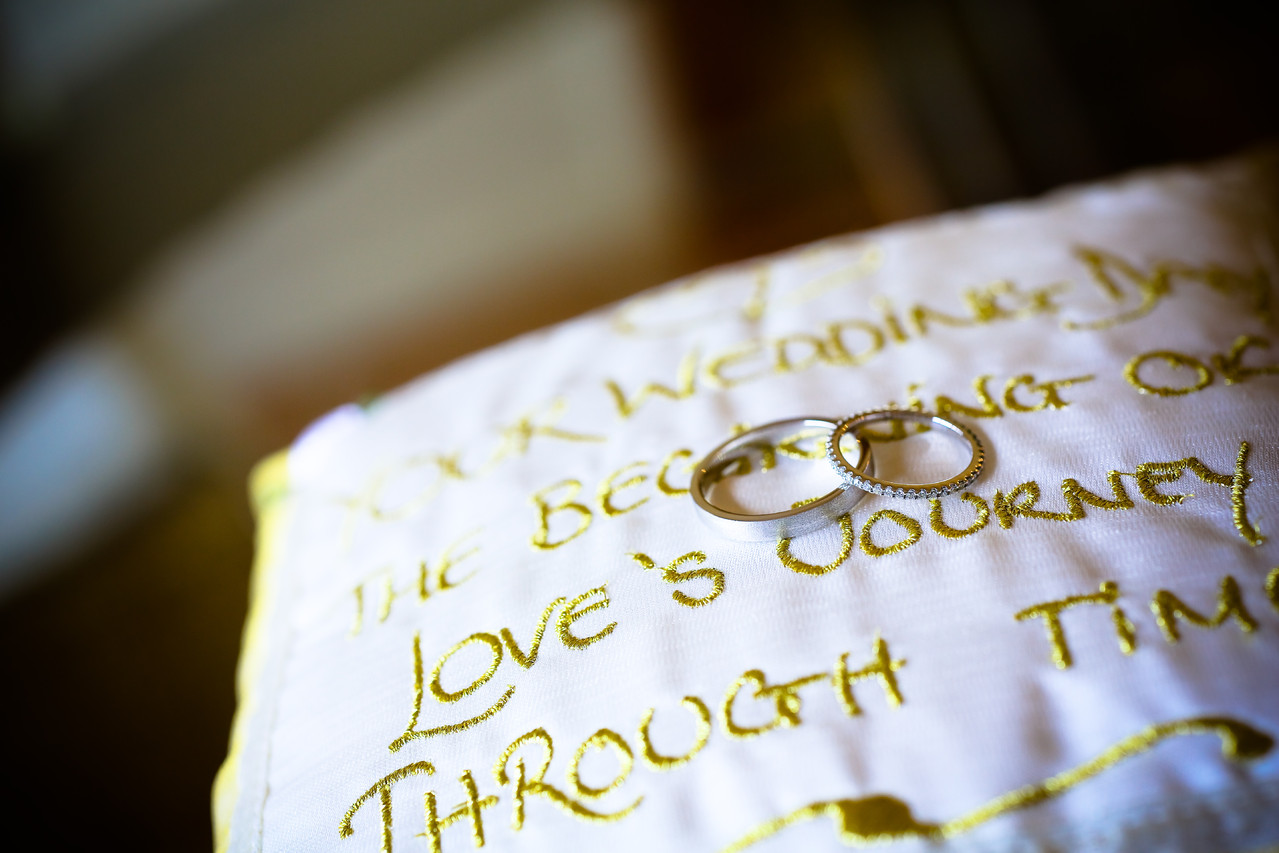 YOUR WEDDING DAY
THE BEGINNING OF
LOVE'S JOURNEY
THROUGH TIME